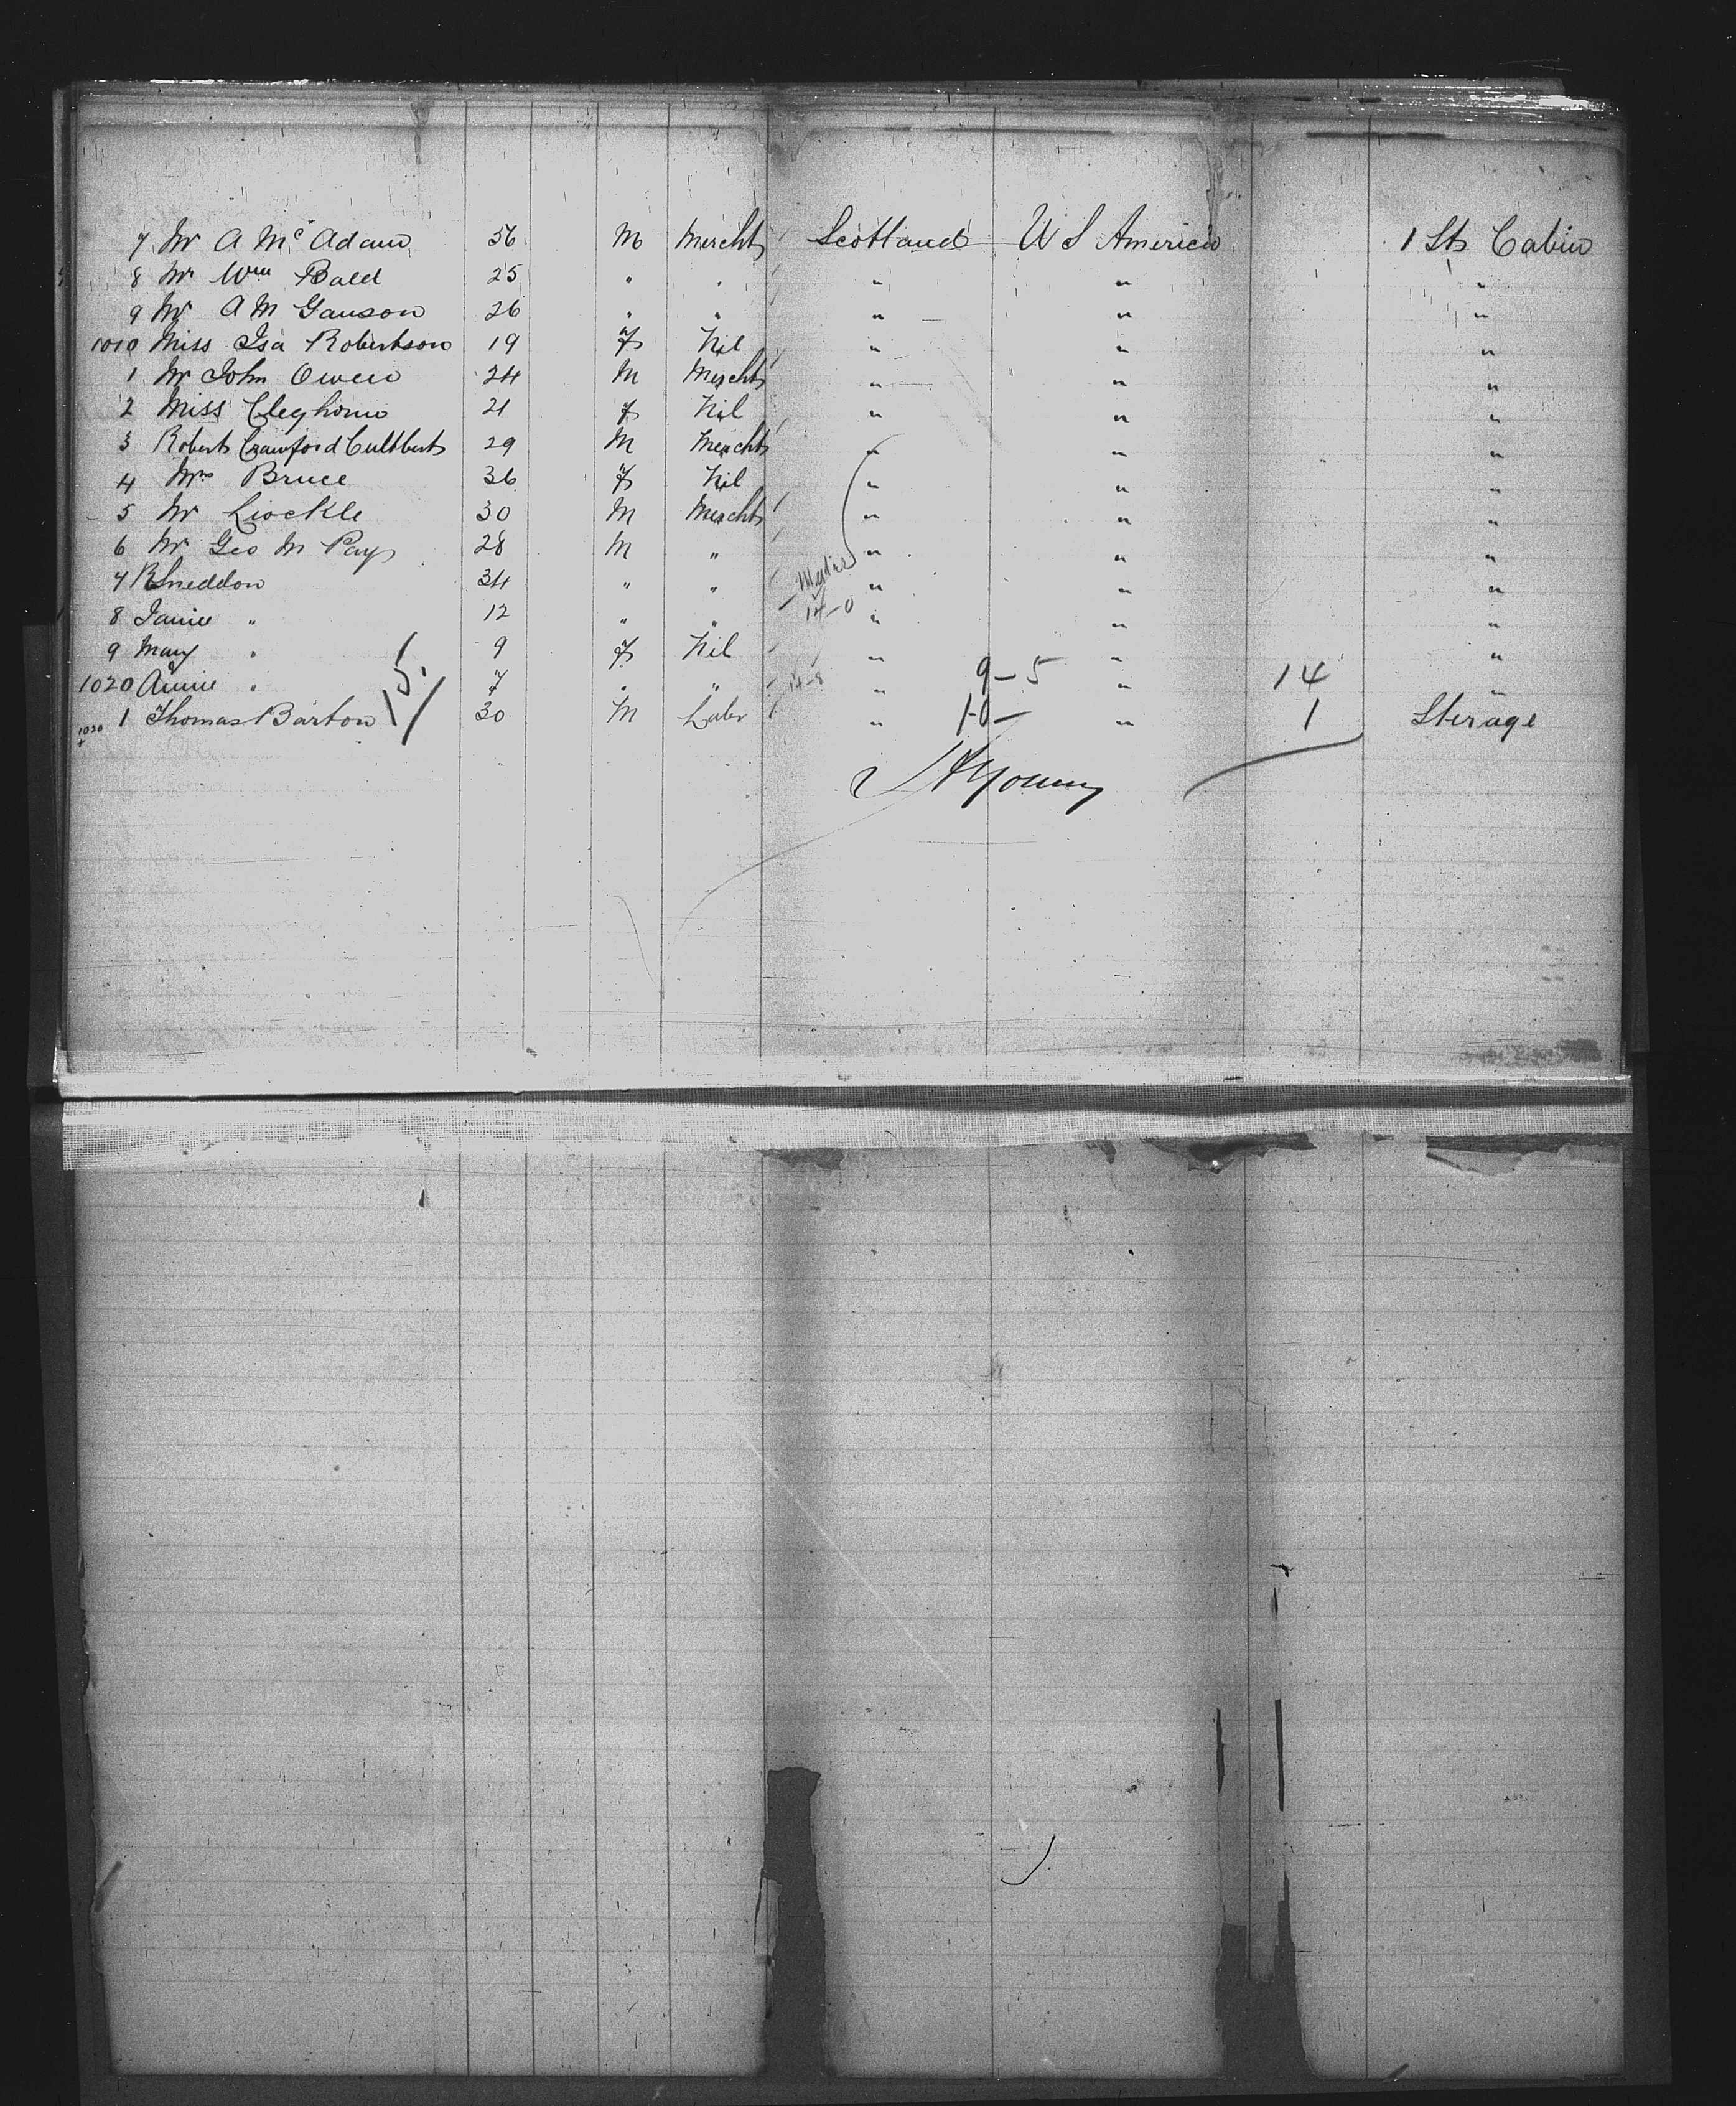 7 Mr A Mc Adam 56 M Mercht Scotland U S America 1 St Cabin
8 Mr Wm Bald 25 " " " " "
9 Mr A M Ganson 26 " " " " "
1010 Miss Isa Robertson 19 F Nil " " "
1 Mr John Owen 24 M Mercht " " "
2 Miss Cleghorn 21 F Nil " " "
3 Robert Crawford Cuthbert 29 M Mercht " " "
4 Mrs Bruce 36 F Nil " " "
5 Mr 30 M Mercht " " "
6 Mr Geo M Pay 28 M " " " "
7 R Sneddon 34 " " " " "
8 " 12 " " 14-0 " " "
9 Mary " 9 F Nil " " "
1020 Annie " 7 " " 14-8 " 9-5 " 14 "
1 Thomas Barton 15 30 M Labr " 10- " 1 Sterage
1020
Young